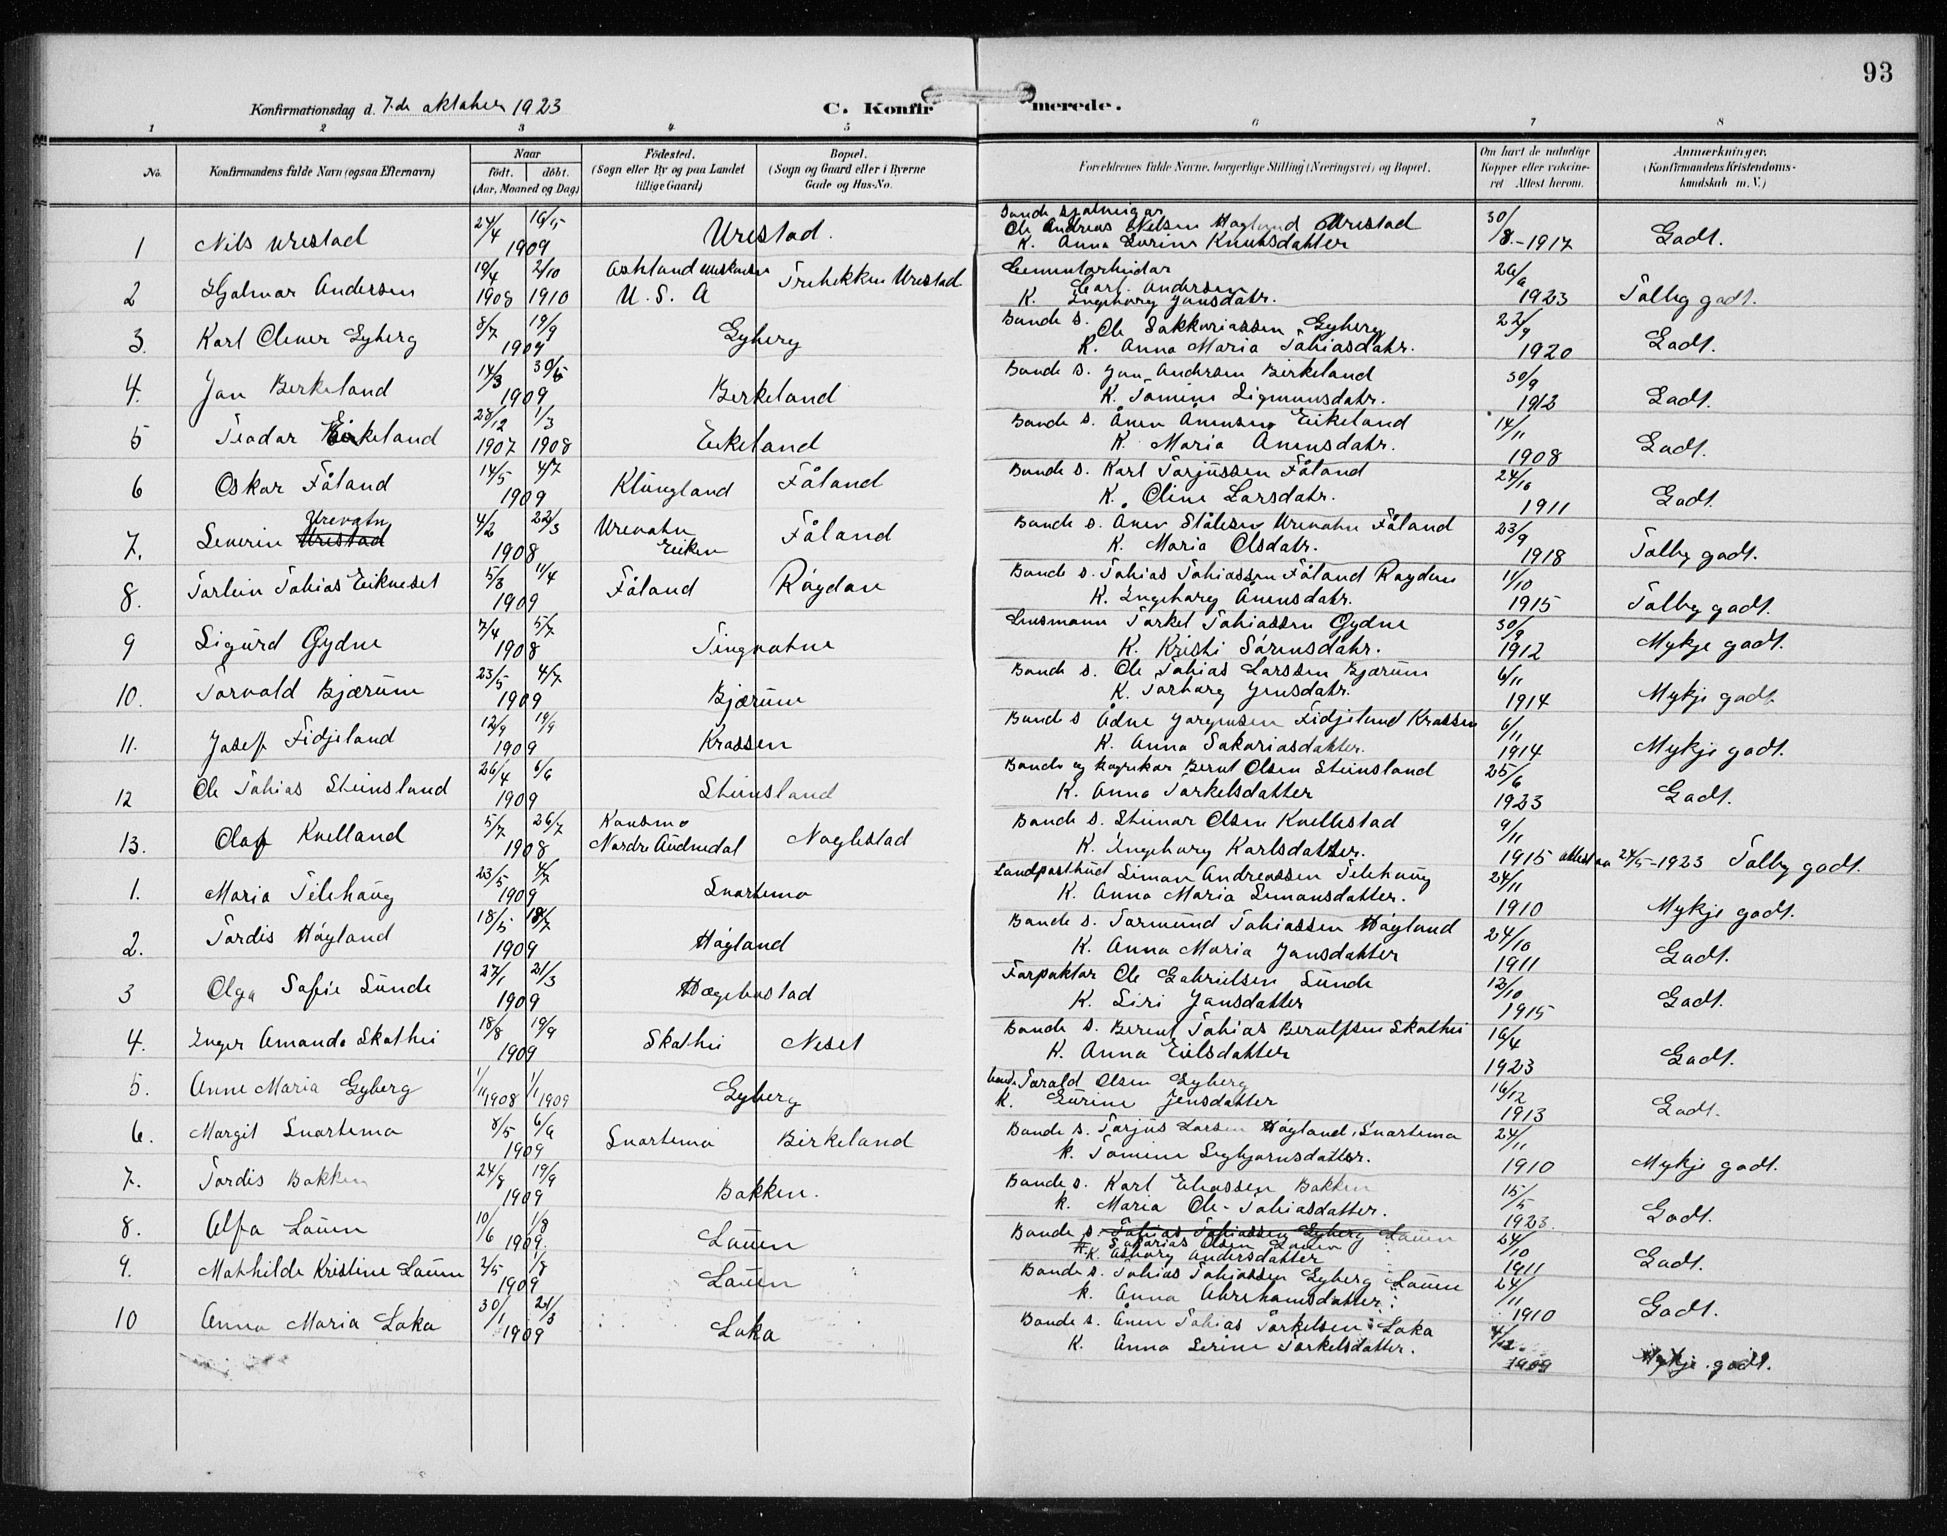 93
Konfirmationsdag d. 7-de oktober 1923
C. Konfirmerede.
1 2 3 4 5 6 7 8
No.
Konfirmandens fulde Navn (ogsaa Efternavn)
Naar
født. døbt.
(Aar, Maaned og Dag)
Fødested.
(Sogn eller By og paa Landet
tillige Gaard)
Bopæl.
(Sogn og Gaard eller i Byerne
Gade og Hus-No.
Forældrenes fulde Navne, borgerlige Stilling (Næringsvei) og Bopæl.
Om havt de naturlige
Kopper eller vakcine-
ret Attest herom.
Anmærkninger.
(Konfirmandens Kristendoms-
kundskab m. V.)
Bonde sjølveigar
1 Nils Urestad 24/4 16/5 1909 Urestad. Ole Andreas Nilsen Hogland Urestad
K. Anna Knutsdatter 30/8-1917 Godt.
2 Hjalmar Andersen 19/4 1908 2/10 1910 Ashland U.S.A Urestad Cementarbeidar
Carl Andersen
K. Ingeborg Jonsdatr. 1923 Tolleg godt.
3. Karl Elener Gyberg 8/7 19/9 1909 Gyberg Bonde s.
Ole Sakkariassen Gyberg
K. Anna Maria Tobiasdatr. 22/9 1920 Godt.
4. Jon Birkeland 14/3 30/5 1909 Birkeland Bonde s. Jon Andersen Birkeland
K. Tomine Sigmunsdatr. 30/9 1912 Godt.
5 Teodor Eikeland 28/12 1907 1/3 1908 Eikeland Bonde s. Ånen Ånensen Eikeland
K. Maria Ånensdatr. 14/11 1908 Godt.
6 Oskar Fåland 14/5 4/7 1909 Klungland Fåland Bonde s. Karl Torjussen Fåland
K. Oline Larsdatr. 24/10 1911 Godt.
Urevatn
7. Severin Urestad 4/2 22/3 1908 Urevatn
Eiken Fåland Bonde s. Ånen Ståleson Urevatn Fåland
K. Maria Olsdatr. 23/9 1918 Tolleg godt.
8. Torleiv Tobias Eikneset 5/3 11/4 1909 Fåland Røydan Bonde s. Tobias Tobiassen Fåland Røydan
K. Ingeborg Ånensdatr. 11/10 1915 Tolleg godt.
9 Sigurd Gydne 7/4 5/7 1908 Tingvatne Lensmann Torkel Tobiassen Gydne
K. Kristi Sørensdatr. 30/9 1912 Mykje godt.
10. Torvald Bjærum 23/5 4/7 1909 Bjærum Bonde s. Ole Tobias Larssen Bjærum
K. Torborg Jensdatr. 6/11 1914 Mykje godt.
11. Josef Fidjeland 12/9 19/9 1909 Krossen Bonde s. Ådne Jørgensen Fidjeland Krossen
K. Anna Sakariasdatter. 6/11 1914 Mykje godt.
12 Ole Tobias Steinsland 26/4 6/6 1909 Steinsland Bonde og Bernt Olsen Steinsland
K. Anna Torkelsdatter 25/6 1923 Godt.
13. Olaf Kvelland 5/7 26/7 1908 Konsmo
Nordre Audnedal Noglestad Bonde s. Steinar Olsen
K. Ingeborg Karlsdatter. 9/11 1915 24/5-1923 Tolleg godt.
1. Maria Telehaug 23/5 4/7 1909 Snartemo Landpostbud Simon Andreassen Telehaug
K. Anna Maria Simonsdatter. 24/11 1910 Mykje godt.
2. Tordis Høyland 18/5 18/7 1909 Høyland Bonde s. Tormund Tobiassen Høyland
K. Anna Maria Jonsdatter 24/10 1911 Godt.
3 Olga Sofie Sunde 27/1 21/3 1909 Hægebostad Forpaktar Ole Gabrielsen Sunde
K. Siri Jonsdatter 12/10 1915 Godt.
4. Inger Amanda Skathei 18/8 19/9 1909 Skathei Neset Bonde s. Berent Tobias Skathei
K. Anna Eielsdatter 16/4 1923 Godt.
5. Anne Maria Gyberg 1/11 1908 1/1 1909 Gyberg bonde Torald Olsen Gyberg
K. Gurine Jensdatter 16/12 1913 Godt.
6. Margit Snartemo 8/5 6/9 1909 Snartemo Birkeland Bonde s. Torjus Larsen Høgland, Snartemo
k. Tomine Segbjørnsdatter. 24/11 1910 Mykje godt.
7. Tordis Bakken 24/8 19/9 1909 Bakken. Bonde s. Karl Eliassen Bakken
k. Maria Ole-Tobiasdatter. 15/5 1923. Godt.
8. Alfa Lauen 10/6 1/8 1909. Lauen Bonde s. Tobias Tobiassen Gyberg Lauen
Sakarias Olsen Lauen
K. Åsborg Andersdatter 24/10 1911 Godt.
9. Mathilde Kristine Lauen 2/5 1/8 1909 Lauen Bonde s. Tobias Tobiassen Gyberg Lauen
k. Anna Abrahamsdatter 24/11 1910 Godt.
10 Anna Maria Loka 30/1 21/3 1909 Loka Bonde s. Ånen Tobias Torkelsen Loka
K. Anna Serine Torkelsdatter. 4/12 1909 Mykje godt.